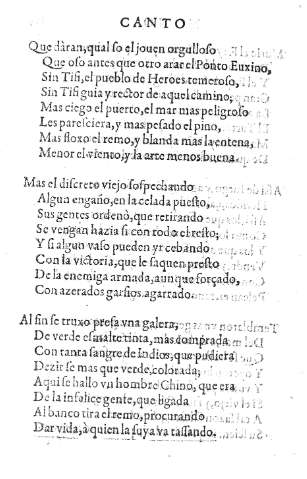 CANTO
Que dàran, qual so el jouen orgulloso
Que oso antes que otro arar el Ponto Euxino,
Sin Tifi, el pueblo de Heroes temeroso,
Sin Tifi guia y rector de aquel camino;
Mas ciego el puerto, el mar mas peligroso
Les paresciera, y mas pesado el pino,
Mas floxo el remo, y blanda mas la entena,
Menor el viento, y la arte menos buena.
Mas el discreto viejo sospechando
Algun engaño, en la celada puesto,
Sus gentes ordenò, que retirando
Se vengan hazia si con todo el resto;
Y si algun vaso pueden yr cebando
Con la victoria, que le saquen presto
De la enemiga armada, aunque forçado,
Con azerados garfios agarrado.
Al fin se truxo presa vna galera,
De verde esmalte tinta, mas comprada
Con tanta sangre de Indios, que pudiera
Dezir se mas que verde, colorada;
Aqui se hallo vn hombre Chino, que era
De la infalice gente, que ligada
Al banco tira el remo, procurando
Dar vida, à quien la suya va tassando.